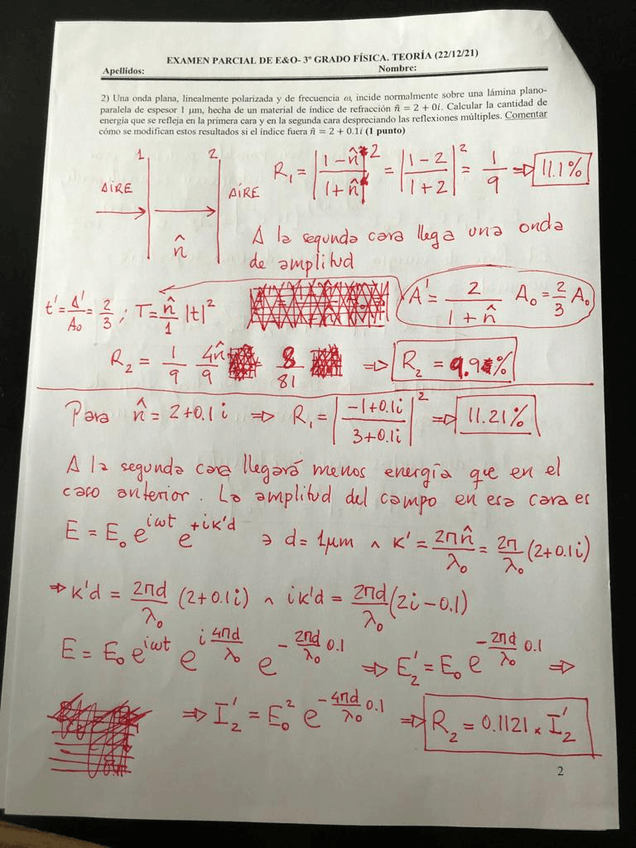 EXAMEN PARCIAL DE E&O- 3º GRADO FÍSICA. TEORÍA (22/12/21)
Apellidos: Nombre:
2) Una onda plana, linealmente polarizada y de frecuencia ω, incide normalmente sobre una lámina plano-
paralela de espesor 1 μm, hecha de un material de índice de refracción n̂ = 2 + 0i. Calcular la cantidad de
energía que se refleja en la primera cara y en la segunda cara despreciando las reflexiones múltiples. Comentar
cómo se modifican estos resultados si el índice fuera n̂ = 2 + 0.1i (1 punto)
1 2
AIRE AIRE
n̂
R₁ = |(1-n̂)/(1+n̂)|² = |(1-2)/(1+2)|² = 1/9 ⇒ 11.1%
A la segunda cara llega una onda
de amplitud
t' = A'/A₀ = 2/3 ; T = n̂/1 |t|² A' = 2/(1+n̂) A₀ = 2/3 A₀
R₂ = 1/9 4n̂/9 8/81 ⇒ R₂ = 9.9%
Para n̂ = 2+0.1i ⇒ R₁ = |(-1+0.1i)/(3+0.1i)|² ⇒ 11.21%
A la segunda cara llegará menos energía que en el
caso anterior. La amplitud del campo en esa cara es
E = E₀ e^{iωt} e^{+ik'd} ∋ d = 1μm ∧ k' = 2πn̂/λ₀ = 2π/λ₀ (2+0.1i)
⇒ k'd = 2πd/λ₀ (2+0.1i) ∧ ik'd = 2πd/λ₀ (2i-0.1)
E = E₀ e^{iωt} e^{i 4πd/λ₀} e^{-2πd/λ₀ 0.1} ⇒ E₂' = E₀ e^{-2πd/λ₀ 0.1} ⇒
⇒ I₂' = E₀² e^{-4πd/λ₀ 0.1} ⇒ R₂ = 0.1121 × I₂'
2